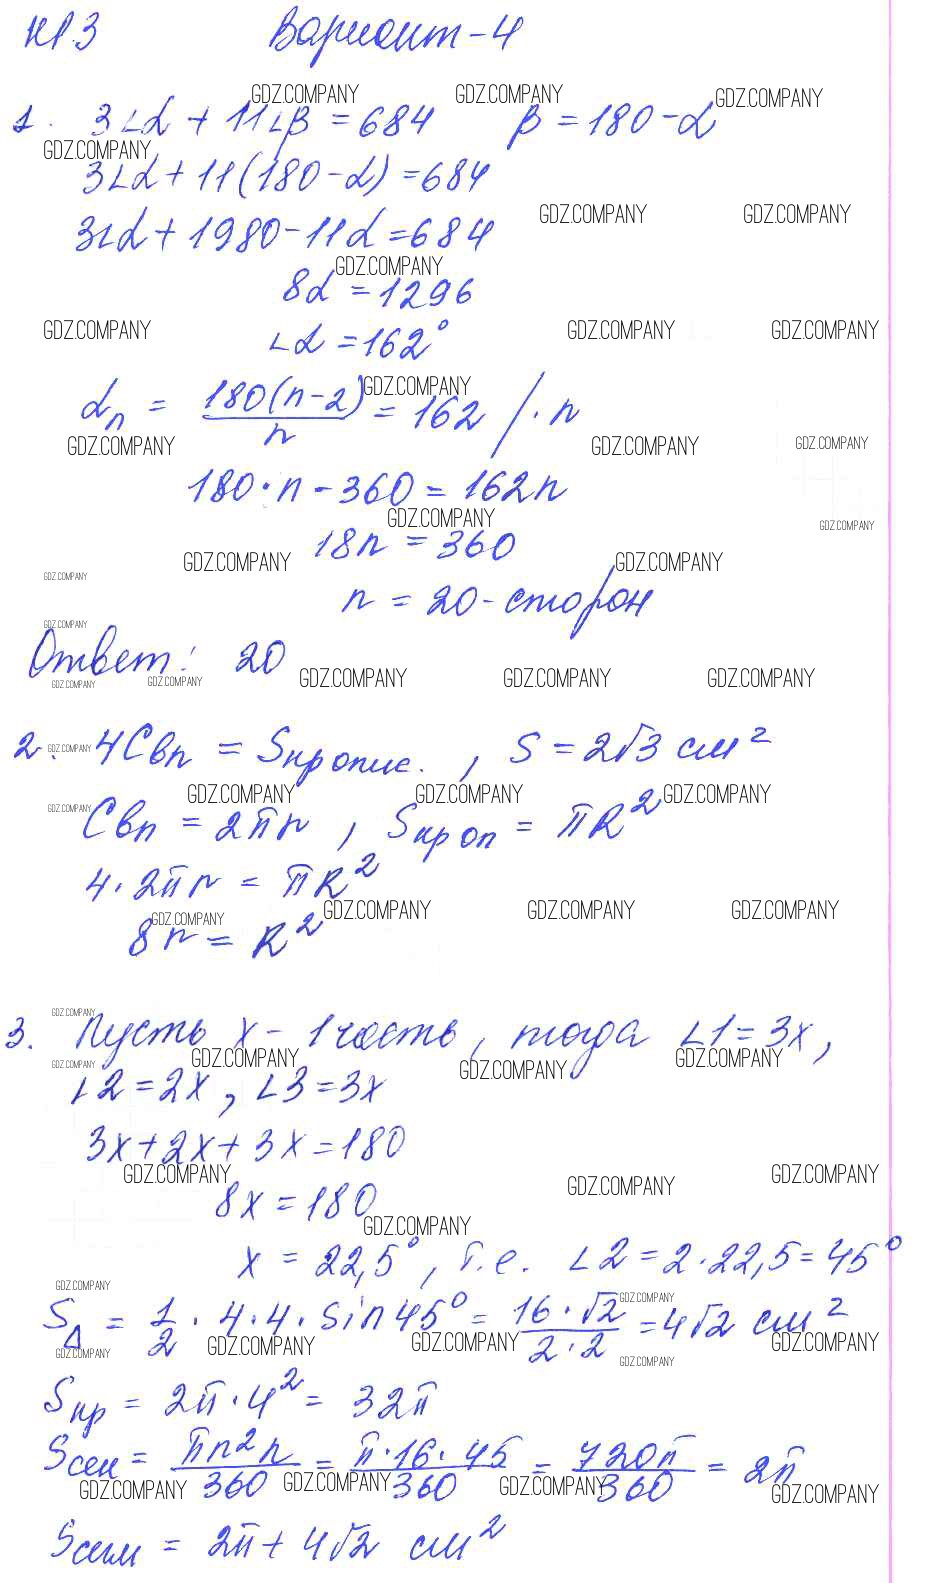 КР.3 Вариант-4
1. 3∠α + 11∠β = 684 β = 180-α
3∠α + 11(180-α) = 684
3∠α + 1980-11α = 684
8α = 1296
∠α = 162°
αn = 180(n-2)/n = 162 / · n
180·n - 360 = 162n
18n = 360
n = 20-сторон
Ответ: 20
2. 4Cвп = Sкропис., S = 2√3 см²
Cвп = 2πr, Sкроп = πR²
4·2πr = πR²
8r = R²
3. Пусть x - 1 часть, тогда ∠1 = 3x,
∠2 = 2x, ∠3 = 3x
3x + 2x + 3x = 180
8x = 180
x = 22,5°, т.е. ∠2 = 2·22,5 = 45°
SΔ = 1/2 · 4·4· sin 45° = 16·√2/2·2 = 4√2 см²
Sкр = 2π·4² = 32π
Sсек = πn²n/360 = π·16·45/360 = 720π/360 = 2π
Sсегм = 2π + 4√2 см²
GDZ.COMPANY